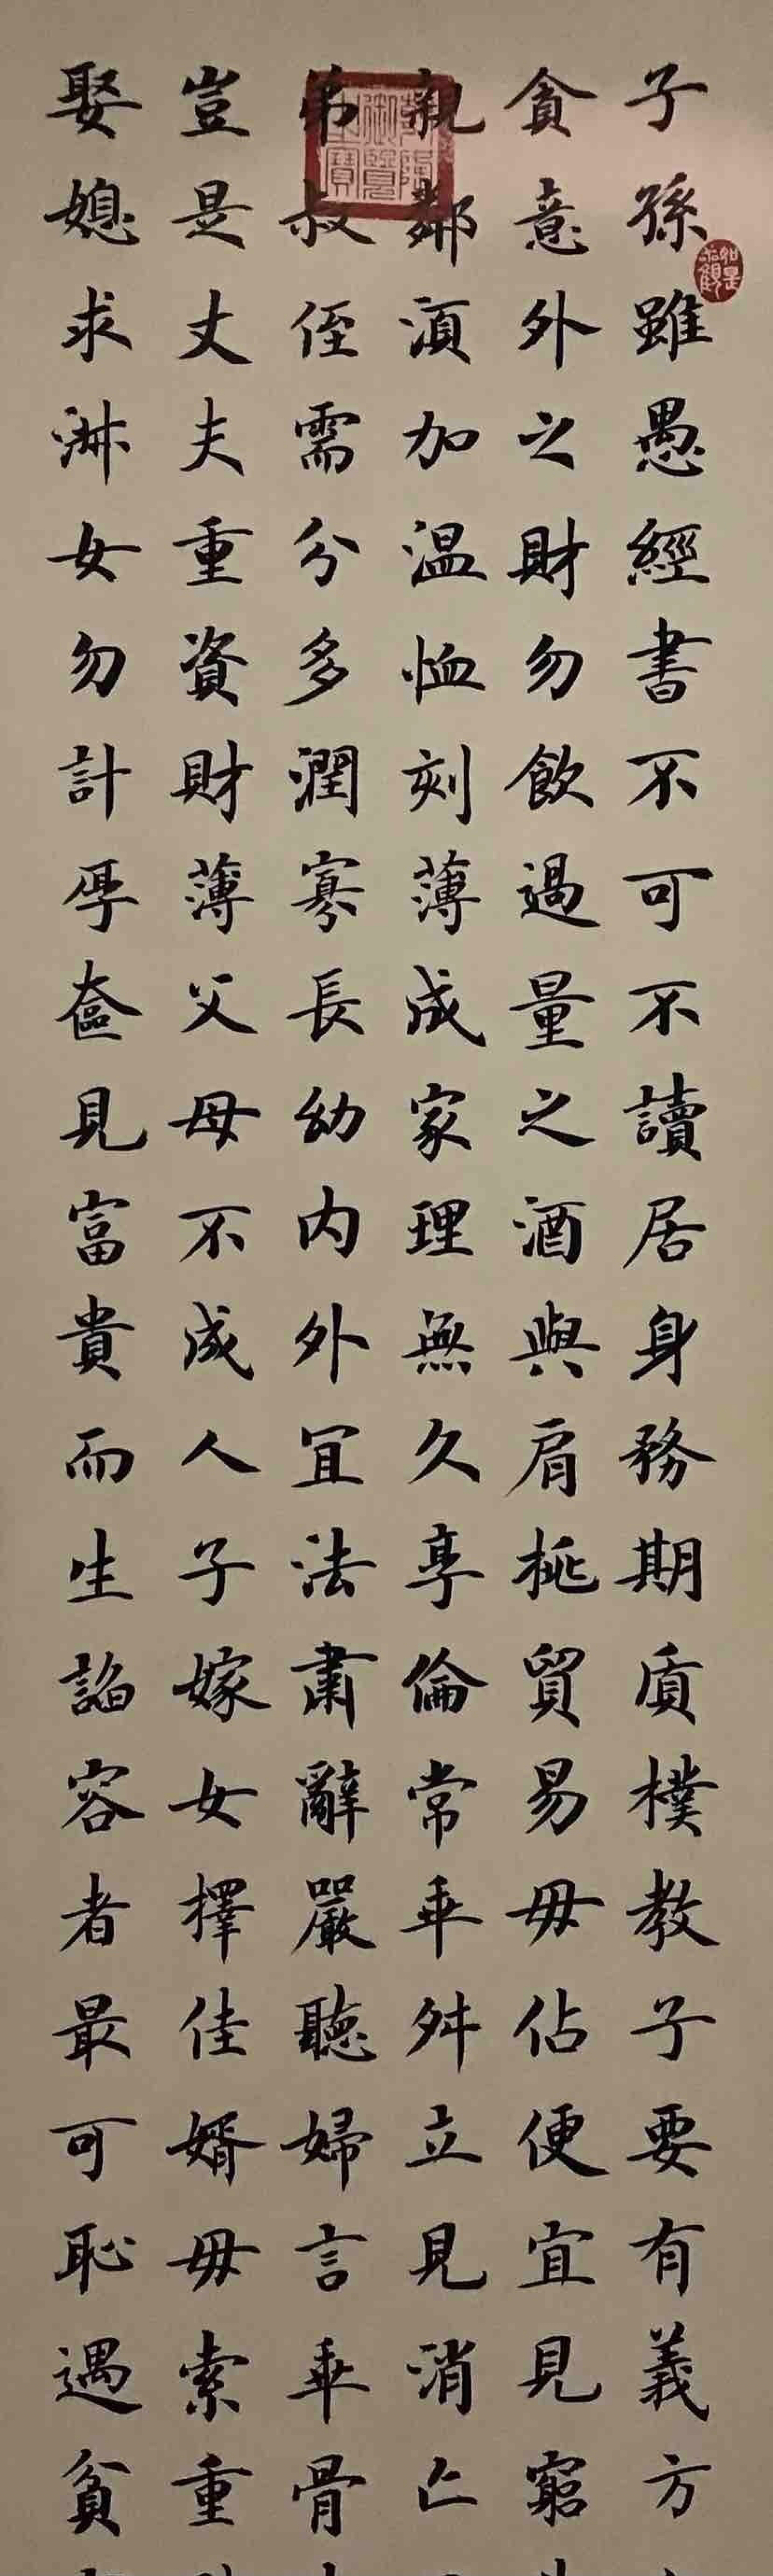 子孫雖愚經書不可不讀居身務期質樸教子要有義方
貪意外之財勿飲過量之酒與肩挑貿易毋佔便宜見窮
親鄰湏加温恤刻薄成家理無久享倫常乖舛立見消亡
弟叔侄需分多潤寡長幼内外宜法肅辭嚴聽婦言乖骨
豈是丈夫重資財薄父母不成人子嫁女擇佳婿毋索重
娶媳求淋女勿計厚奩見富貴而生諂容者最可恥遇貧
如是觀